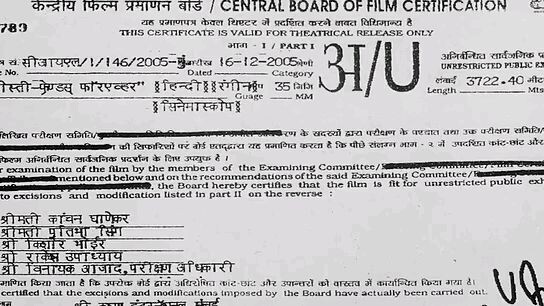 केन्द्रीय फिल्म प्रमाणन बोर्ड / CENTRAL BOARD OF FILM CERTIFICATION
789
यह प्रमाणपत्र केवल थिएटर में प्रदर्शित करने बाबत विधिमान्य है
THIS CERTIFICATE IS VALID FOR THEATRICAL RELEASE ONLY
भाग - I / PART I
सं सीआयएल/1/146/2005-मुं तारीख 16-12-2005 श्रेणी
अ/U
अनिर्बन्धित सार्वजनिक
UNRESTRICTED PUBLIC
e No. Dated Category
लंबाई 3722.40 मीटर
Length Mts
दोस्ती-फ्रेण्ड्स फॉरएव्हर" हिन्दी रंगीन 35 मिमि
Guage MM
सिनेमास्कोप
परीक्षण समिति/ के सदस्यों द्वारा परीक्षण के पश्चात तथा उक्त परीक्षण समिति/
की सिफारिशों पर बोर्ड एतद्द्वारा यह प्रमाणित करता है कि पीछे संलग्न भाग - २ में
फिल्म अनिर्बन्धित सार्वजनिक प्रदर्शन के लिए उपयुक्त है ।
r examination of the film by the members of the Examining Committee/
mentioned below and on the recommendations of the said Examining Committee/
, the Board hereby certifies that the film is fit for unrestricted public exh
to excisions and modification listed in part II on the reverse :
श्रीमती कांचन घाणेकर
श्रीमती प्रतिभा सिंग
श्री किशोर भोईर
श्री राकेश उपाध्याय
श्री विनायक आजाद, परीक्षण अधिकारी
किया जाता है कि उपरोक्त बोर्ड द्वारा अधिरोपित काट-छाट और उपान्तरों को वास्तव में कार्यान्वित किया गया है।
certified that the excisions and modifications imposed by the Board have actually been carried out.